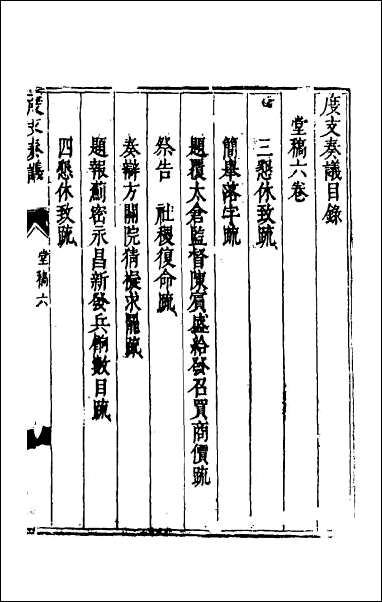 度支奏議目錄
堂稿六卷
三懇休致疏
簡舉落字疏
題覆太倉監督陳賓盛給發召買商價疏
祭告　社稷復命疏
奏辯方關院猜擬求罷疏
題報薊密永昌新發兵餉數目疏
四懇休致疏
度支奏議
堂稿六